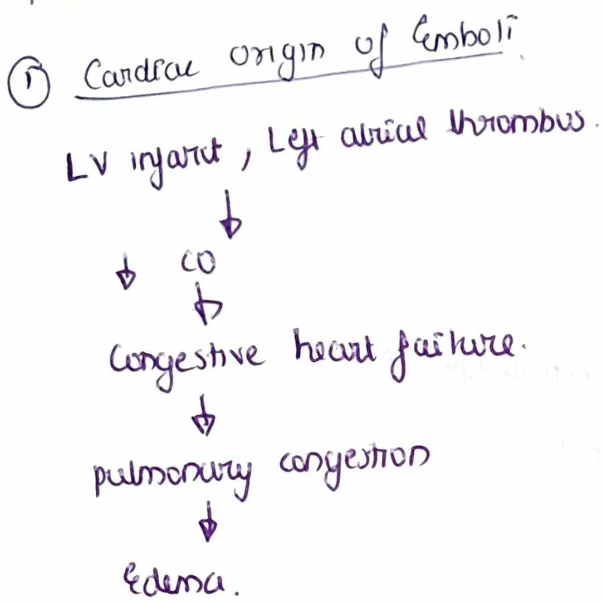 ① Cardiac origin of Emboli.
LV infarct, Left atrial thrombus.
↓
↓ CO
↓
Congestive heart failure.
↓
pulmonary congestion
↓
Edema.